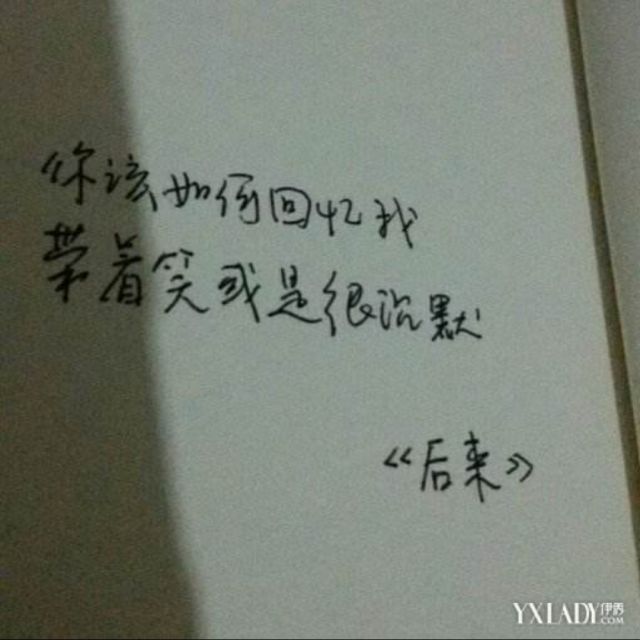 你该如何回忆我
带着笑或是很沉默
《后来》
YXLADY伊秀
.COM